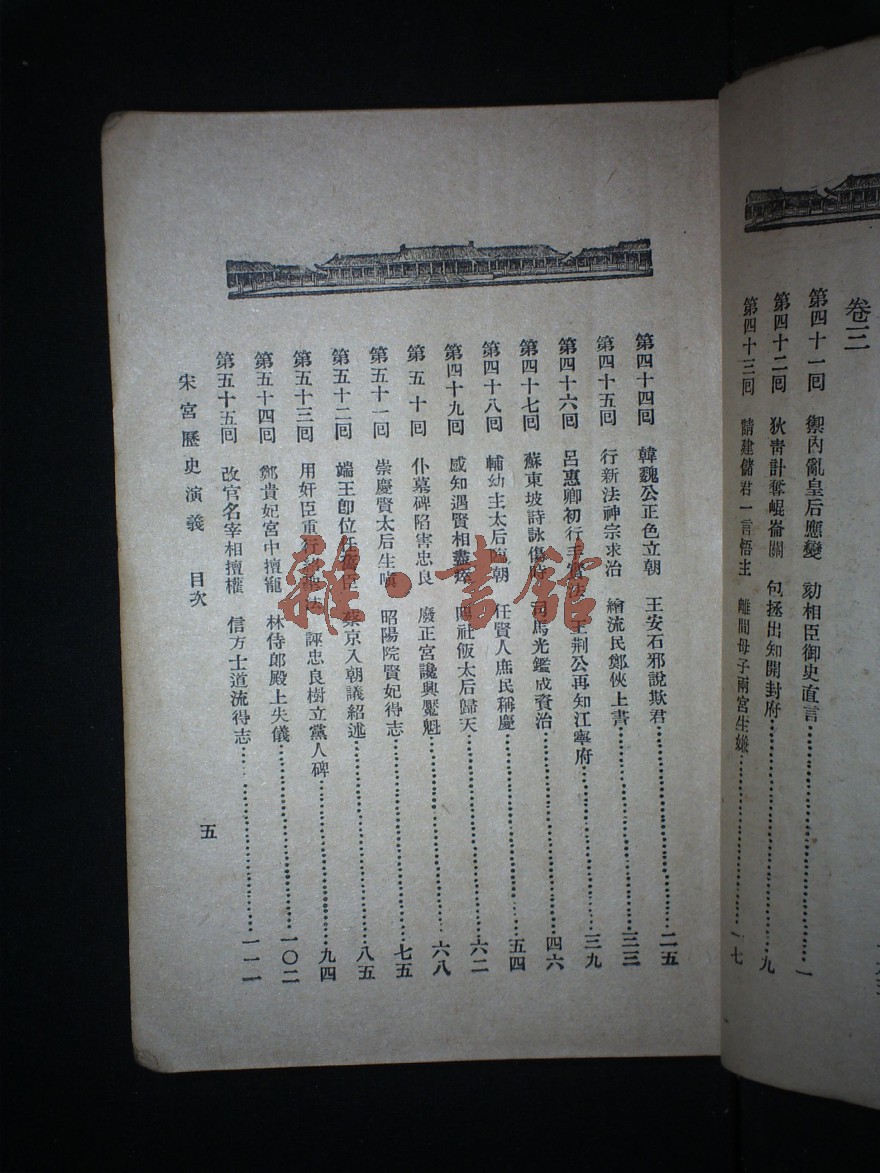 卷三
第四十一回 禦內亂皇后應變 劾相臣御史直言 一
第四十二回 狄靑計奪崐崙關 包拯出知開封府 九
第四十三回 請建儲君一言悟主 離間母子兩宮生嫌 一七
第四十四回 韓魏公正色立朝 王安石邪說欺君 二五
第四十五回 行新法神宗求治 繪流民鄭俠上書 三三
第四十六回 呂惠卿初行手實法 王荆公再知江寧府 三九
第四十七回 蘇東坡詩詠傷時 司馬光鑑成資治 四六
第四十八回 輔幼主太后臨朝 任賢人庶民稱慶 五四
第四十九回 感知遇賢相盡瘁 社飯太后歸天 六二
第五十回 仆墓碑陷害忠良 廢正宮讒興魘魁 六八
第五十一回 崇慶賢太后生嗔 昭陽院賢妃得志 七五
第五十二回 端王卽位任 臣 蔡京入朝議紹述 八五
第五十三回 用奸臣重行 法 誣忠良樹立黨人碑 九四
第五十四回 鄭貴妃宮中擅寵 林侍郎殿上失儀 一〇二
第五十五回 改官名宰相擅權 信方士道流得志 一一一
宋宮歷史演義 目次 五
雜·書館